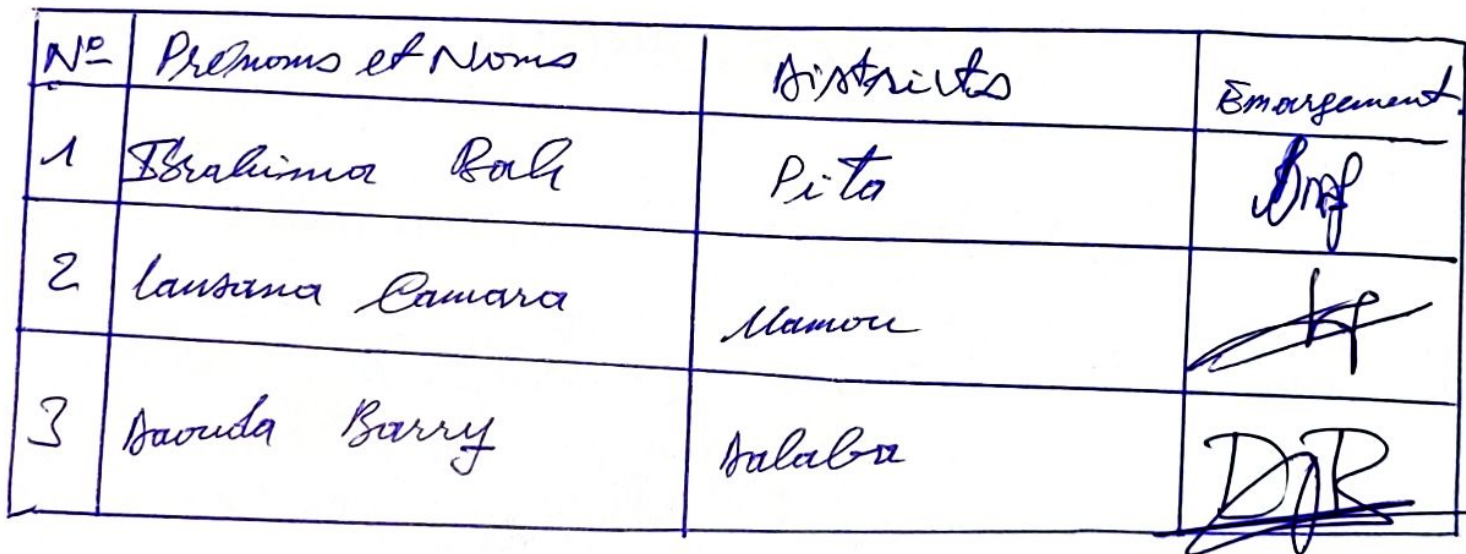 N° Prénoms et Noms Districts Emargement.
1 Ibrahima Bah Pita
2 Lansana Camara Mamou
3 Daouda Barry Dalaba